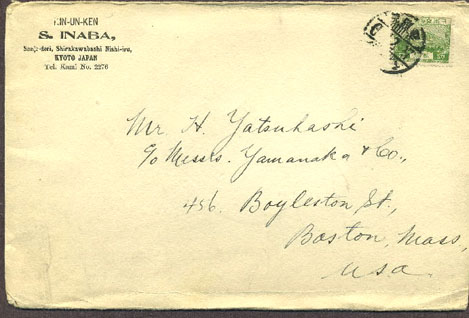 RIN-UN-KEN
S. INABA,
Shirakawabashi Nishi-iru,
KYOTO JAPAN
Tel. Kami No. 2276
Mr H. Yatsuhashi
c/o Messrs. Yamanaka & Co.,
456. Boyleston St.,
Boston, Mass,
USA